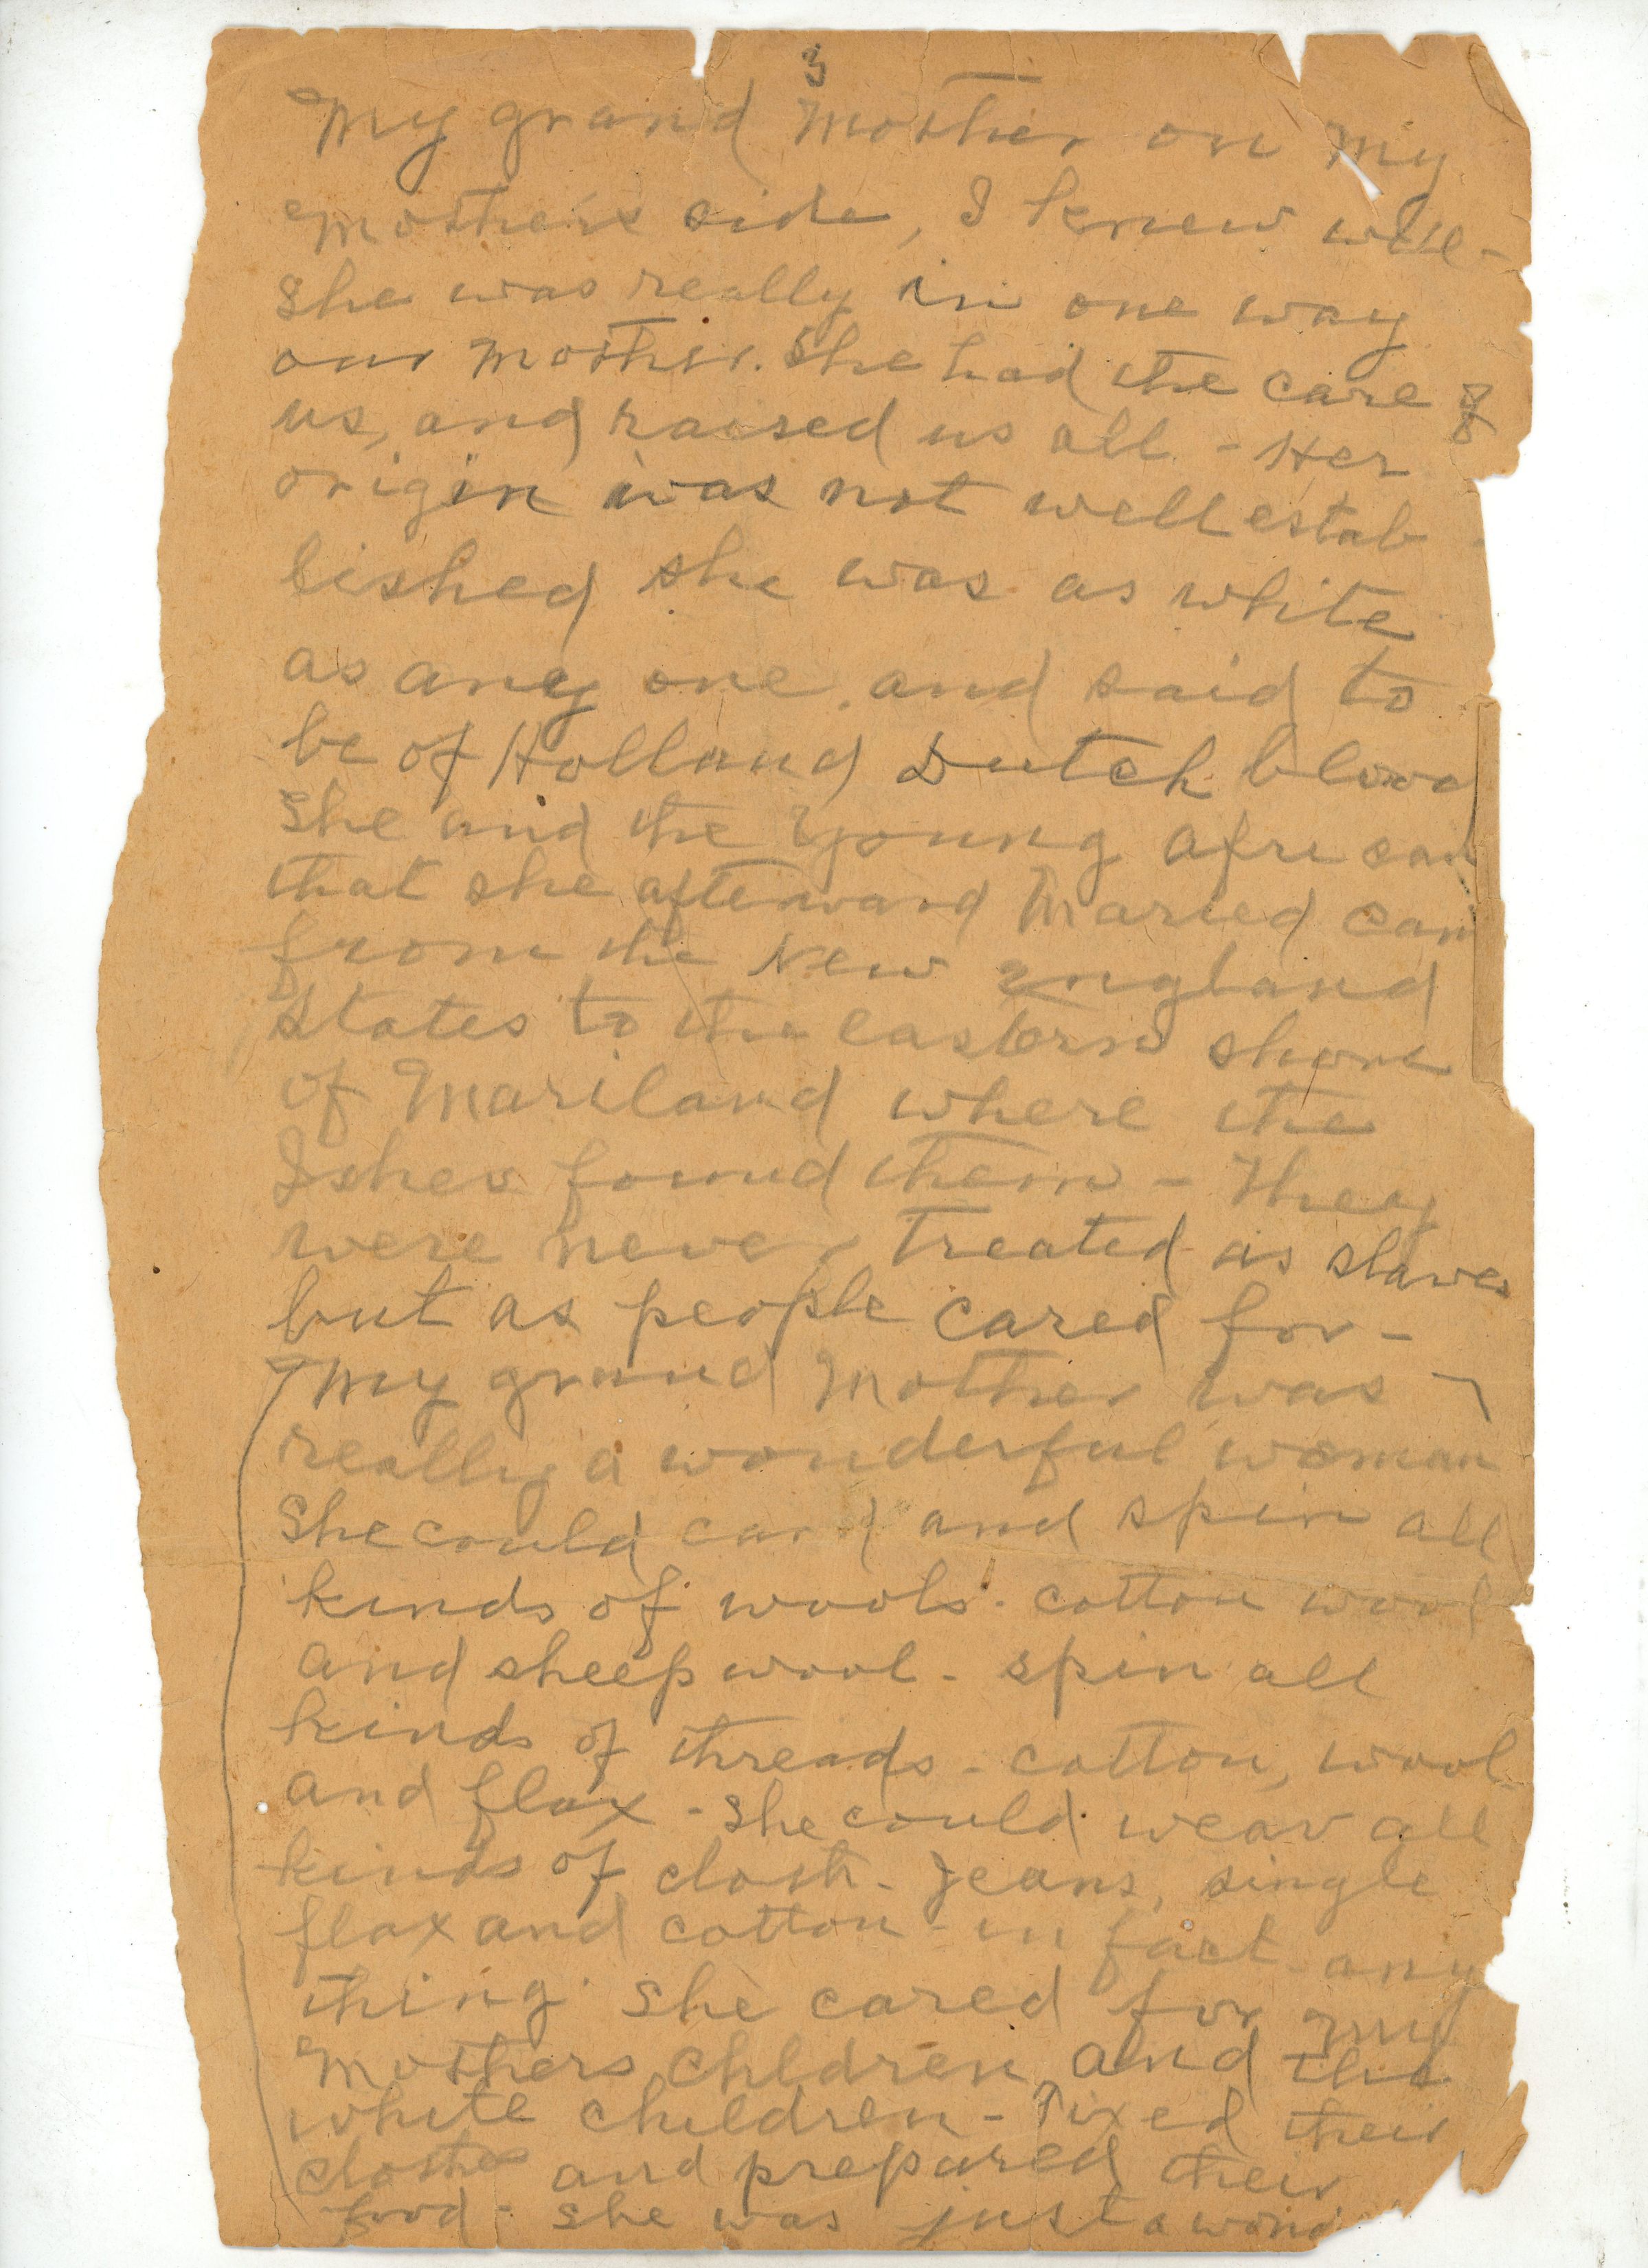 3
My grand Mother on My
Mother's side, I knew well -
She was really in one way
our Mother. She had the care of
us, and raised us all - Her
origin was not well estab -
lished she was as white
as any one. and said to
be of Holland Dutch blood
She and the young African
that she afterward Maried cam
from the New England
States to the eastern shore
of Mariland where the
Ishes found them - They
were never treated as slaves
but as people cared for -
My grand Mother was
really a wonderful woman
She could card and spin all
kinds of wools. cotton wool
and sheep wool - spin all
kinds of threads - cotton, wool
and flax - She could weav all
kinds of cloth - jeans, single
flax and cotton - in fact any
thing. She cared for my
Mothers chldren and the
white children - fixed their
clothes and prepared their
food - She was just a wond